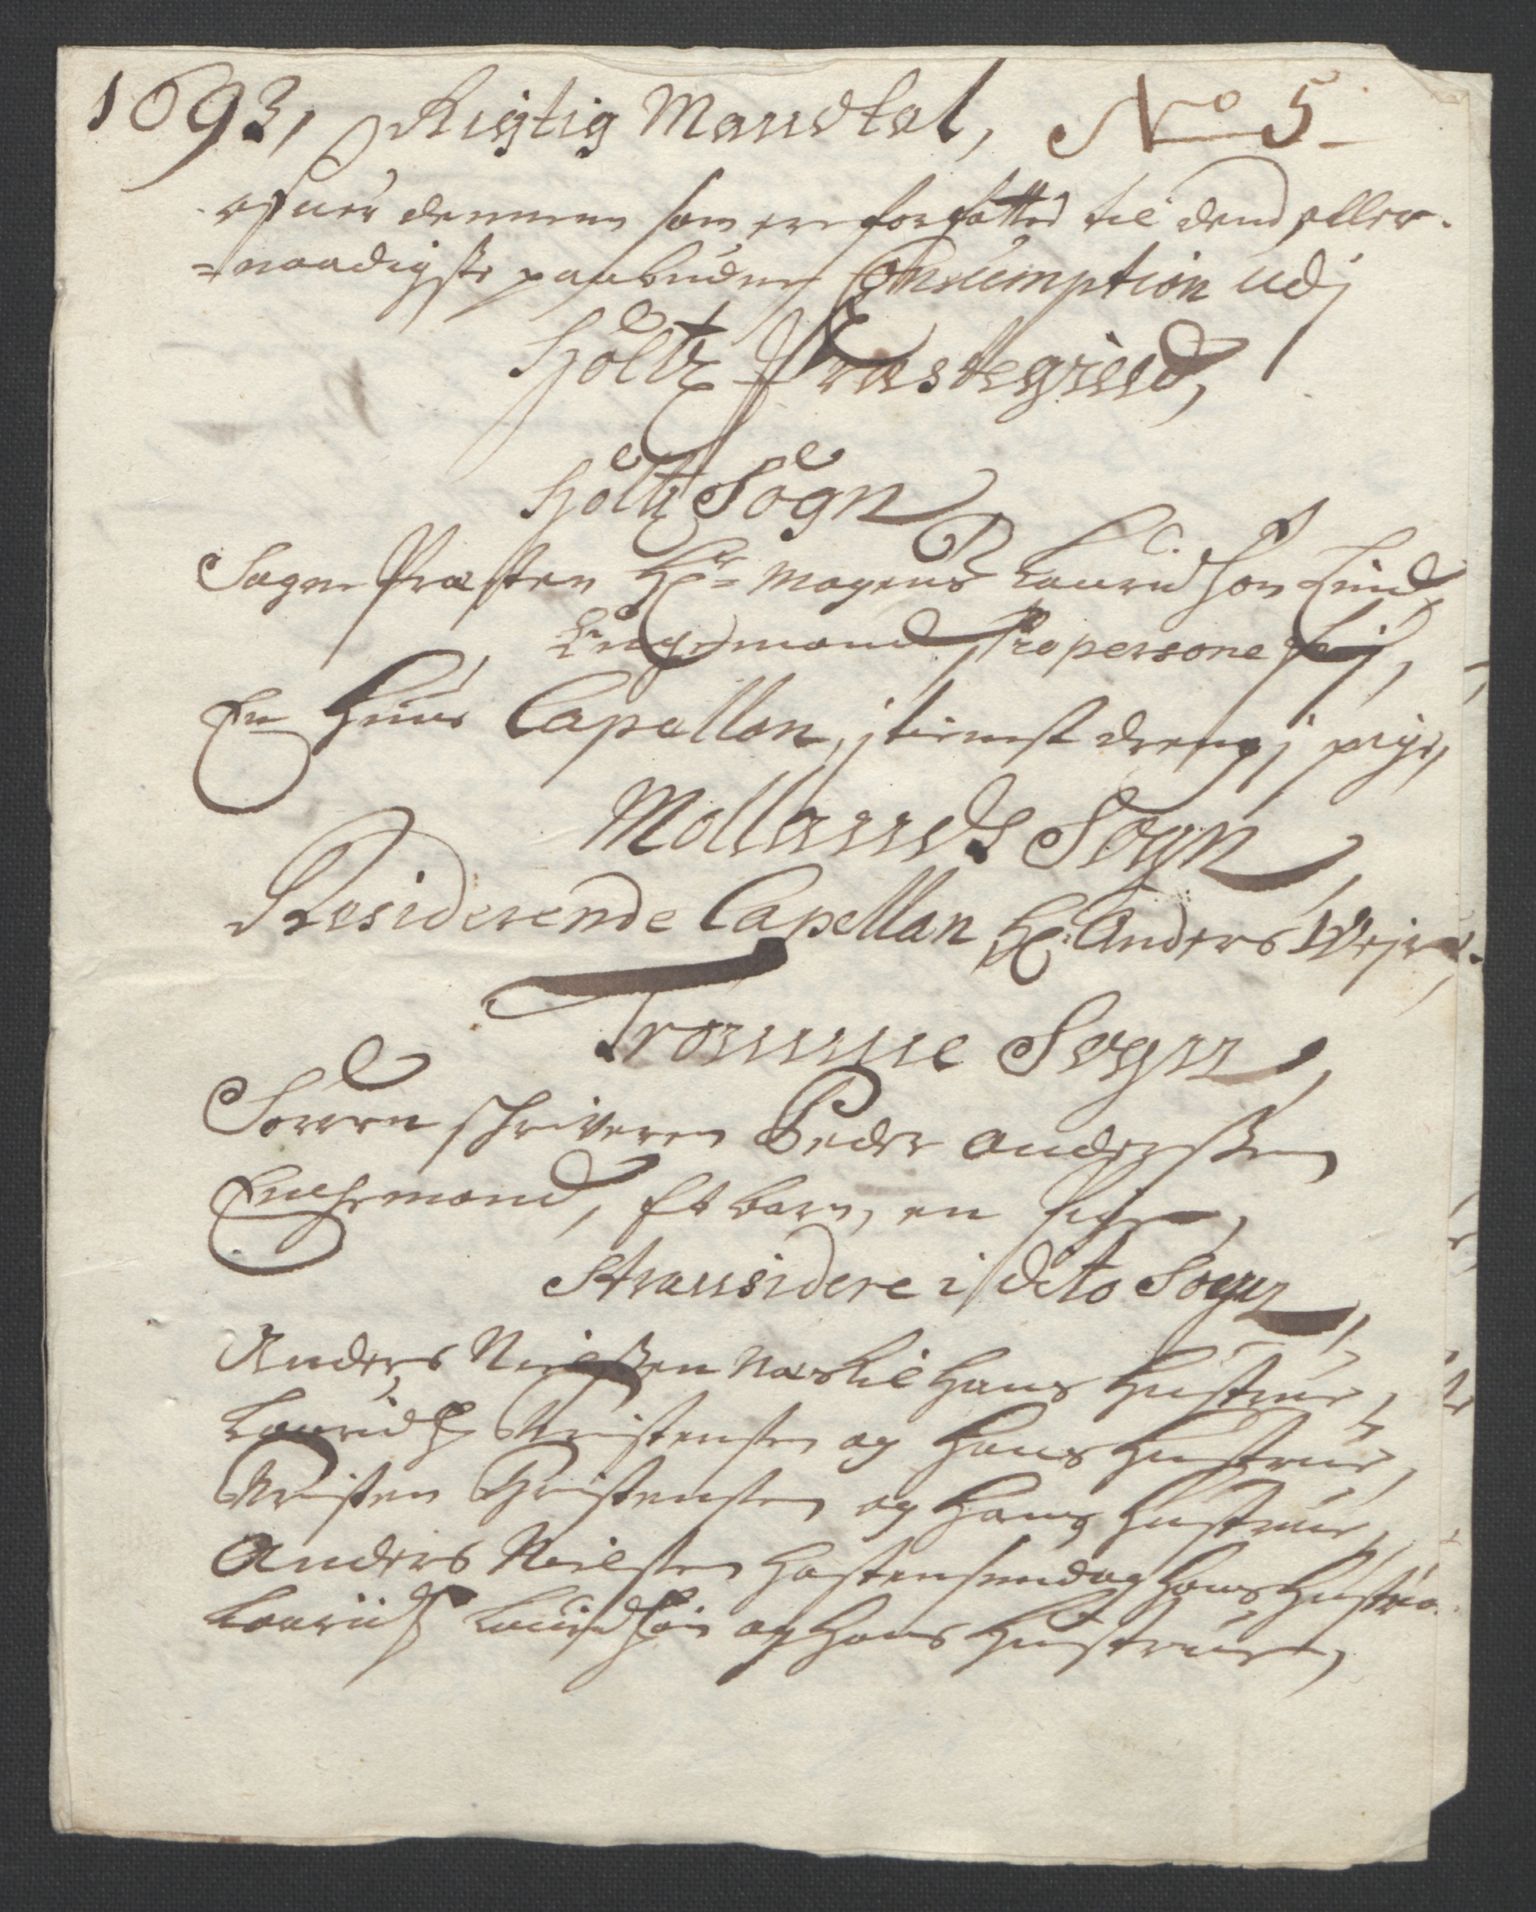 1693, Rigtig Mandtal, No 5
ofuer dennem som ere forfatted til dend aller-
=naadigste paabudne Consumption udj
Hölts Præstegield,
Hölts Sogn
Sogne Præsten Hr= Mogens Lauridsön Lind,
Engemand, Pro persone
En Huus Capellan, j tienist dreng j pige,
Mollands Sogn,
Residerende Capellan Hr: Anders Wejer,
Trommne Sogn,
Sorenschriveren Peder Anderssen
Enchemand, Et barn, en Pige,
Stransidere i dito Sogn,
Anders Nielssen Næskil Hans Hustrue,
Lauridtz Christensen og Hans Hustrue,
Christen Christensen og Hans Hustrue,
Anders Nielsen Hastensund og Hans Hustrue
Lauridtz Lauridtzön og Hans Hustrue,